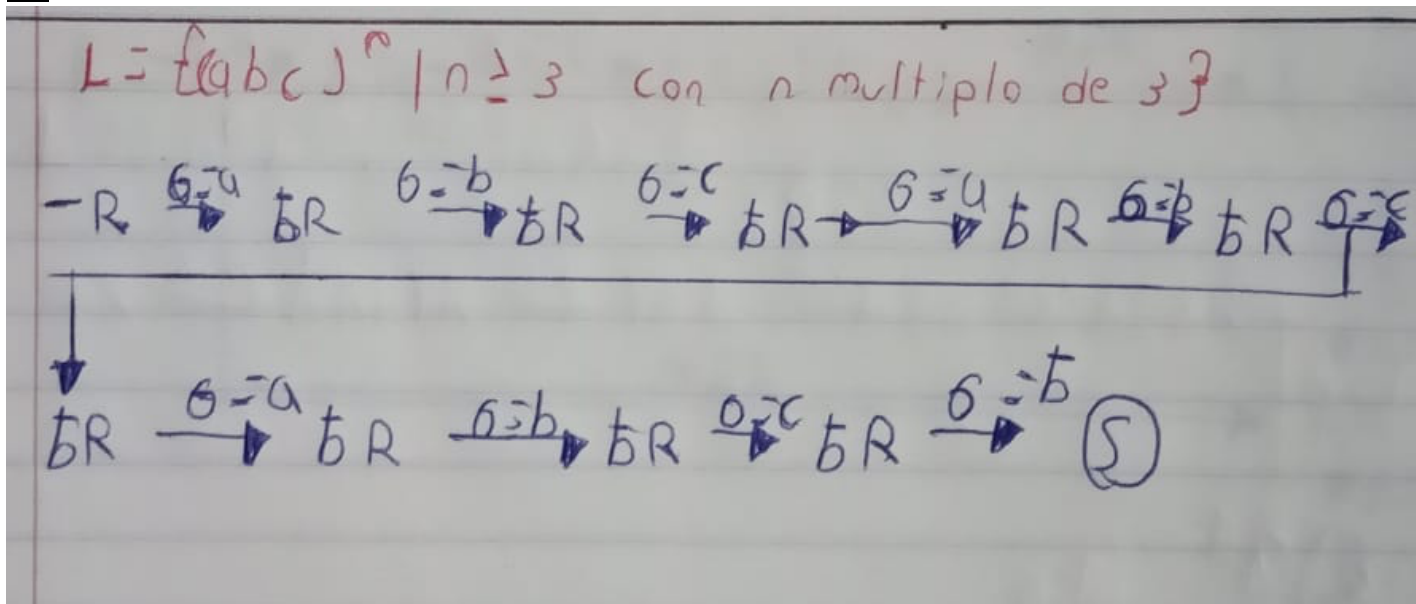 L = {(abc)ⁿ / n ≥ 3 con n multiplo de 3}
- R σ=a ƀR σ=b ƀR σ=c ƀR σ=a ƀR σ=b ƀR σ=c
ƀR σ=a ƀR σ=b ƀR σ=c ƀR σ=ƀ S